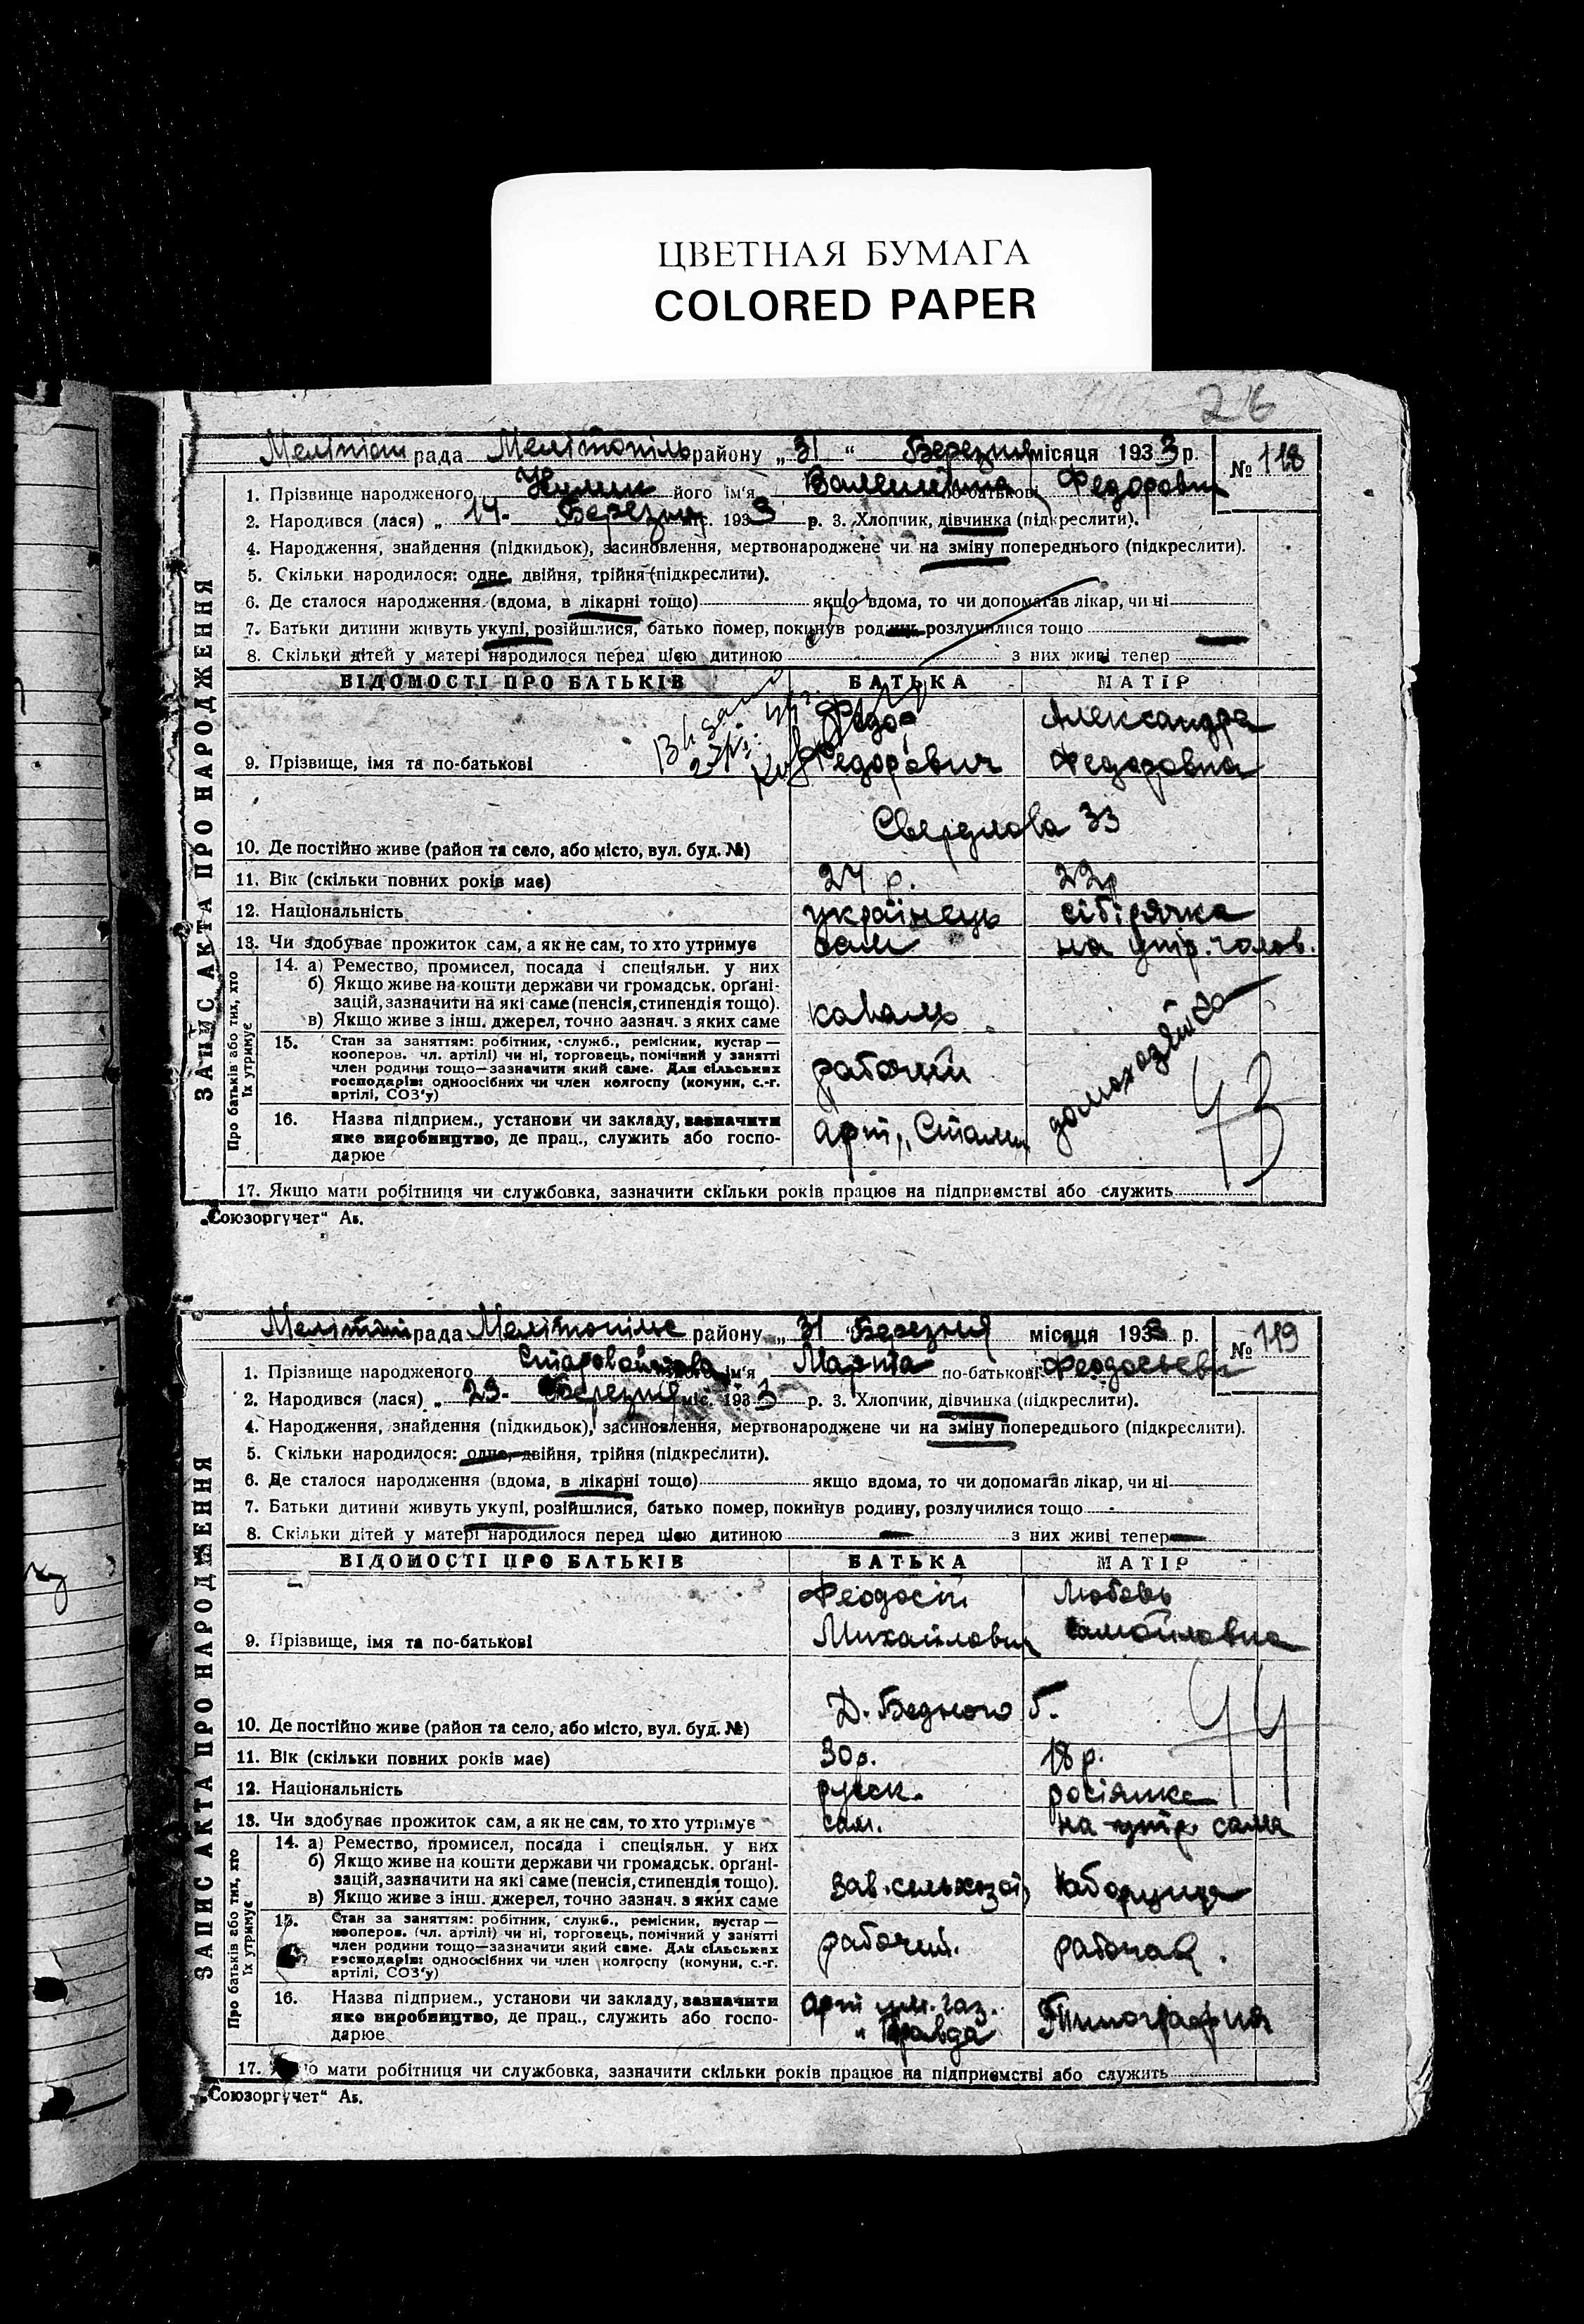 ЦВЕТНАЯ БУМАГА
COLORED PAPER
26
ЗАПИС АКТА ПРО НАРОДЖЕННЯ
рада Мелітопіль району „ 31 “ Березня місяця 1933 р. № 118
1. Прізвище народженого його ім'я Валентина по-батькові Федоровн
2. Народився (лася) „ 14. Березня міс. 1933 р. 3. Хлопчик, дівчинка (підкреслити).
4. Народження, знайдення (підкидьок), засиновлення, мертвонароджене чи на зміну попереднього (підкреслити).
5. Скільки народилося: одне, двійня, трійня (підкреслити).
6. Де сталося народження (вдома, в лікарні тощо) якщо вдома, то чи допомагав лікар, чи ні
7. Батьки дитини живуть укупі, розійшлися, батько помер, покинув родину, розлучилися тощо
8. Скільки дітей у матері народилося перед цією дитиною з них живі тепер
ВІДОМОСТІ ПРО БАТЬКІВ БАТЬКА МАТІР
Федор Александра
9. Прізвище, імя та по-батькові Федорович Федоровна
Свердлова 33
10. Де постійно живе (район та село, або місто, вул. буд. №)
11. Вік (скільки повних років має) 24 р. 22 р
12. Національність українець сібірячка
13. Чи здобуває прожиток сам, а як не сам, то хто утримує сам на утр. чолов.
Про батьків або тих, хто їх утримує
14. а) Ремество, промисел, посада і спеціяльн. у них
б) Якщо живе на кошти держави чи громадськ. орґані-
зацій, зазначити на які саме (пенсія, стипендія тощо).
в) Якщо живе з інш. джерел, точно зазнач. з яких саме коваль
домохозяйка
15. Стан за заняттям: робітник, служб., ремісник, кустар —
кооперов. чл. артілі) чи ні, торговець, помічний у занятті
член родини тощо—зазначити який саме. Для сільських
господарів: одноосібних чи член колгоспу (комуни, с.-г.
артілі, СОЗ'у) рабочий
43
16. Назва підприєм., установи чи закладу, зазначити
яке виробництво, де прац., служить або госпо-
дарює арт. „Сталин
17. Якщо мати робітниця чи службовка, зазначити скільки років працює на підприємстві або служить
„Союзоргучет“ Ав.
ЗАПИС АКТА ПРО НАРОДЖЕННЯ
рада Мелітопільс району „ 31 Березня місяця 1933 р. № 119
1. Прізвище народженого Старовойтова ім'я Марта по-батькові Феодосьевн
2. Народився (лася) „ 23. Березня міс. 1933 р. 3. Хлопчик, дівчинка (підкреслити).
4. Народження, знайдення (підкидьок), засиновлення, мертвонароджене чи на зміну попереднього (підкреслити).
5. Скільки народилося: одне, двійня, трійня (підкреслити).
6. Де сталося народження (вдома, в лікарні тощо) якщо вдома, то чи допомагав лікар, чи ні
7. Батьки дитини живуть укупі, розійшлися, батько помер, покинув родину, розлучилися тощо
8. Скільки дітей у матері народилося перед цією дитиною — з них живі тепер —
ВІДОМОСТІ ПРО БАТЬКІВ БАТЬКА МАТІР
Феодосій Любовь
9. Прізвище, імя та по-батькові Михайлович Самойловна
Д. Бедного 5.
44
10. Де постійно живе (район та село, або місто, вул. буд. №)
11. Вік (скільки повних років має) 30 р. 18 р.
12. Національність руск. росіянка
13. Чи здобуває прожиток сам, а як не сам, то хто утримує сам. на утр. сама
Про батьків або тих, хто їх утримує
14. а) Ремество, промисел, посада і спеціяльн. у них
б) Якщо живе на кошти держави чи громадськ. орґані-
зацій, зазначити на які саме (пенсія, стипендія тощо).
в) Якщо живе з інш. джерел, точно зазнач. з яких саме Зав. сельхозой, наборщиця
15. Стан за заняттям: робітник, служб., ремісник, кустар —
кооперов. (чл. артілі) чи ні, торговець, помічний у занятті
член родини тощо—зазначити який саме. Для сільських
господарів: одноосібних чи член колгоспу (комуни, с.-г.
артілі, СОЗ'у) рабочий. рабочая.
16. Назва підприєм., установи чи закладу, зазначити
яке виробництво, де прац., служить або госпо-
дарює арт им. газ. „Правда Типография
17. мати робітниця чи службовка, зазначити скільки років працює на підприємстві або служить
„Союзоргучет“ Ав.